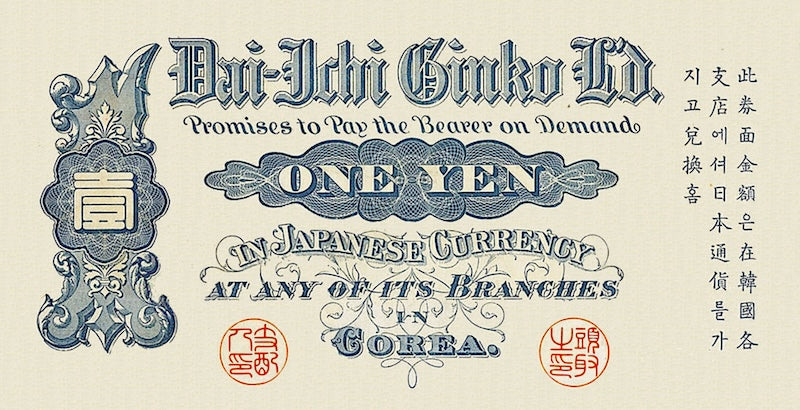 Dai-Ichi Ginko L'd.
Promises to Pay the Bearer on Demand
壹
ONE YEN
IN JAPANESE CURRENCY
AT ANY OF ITS BRANCHES
IN
COREA.
此券面金額은在韓國各
支店에셔日本通貨를가
지고兌換홈
支配
人印
頭取
之印